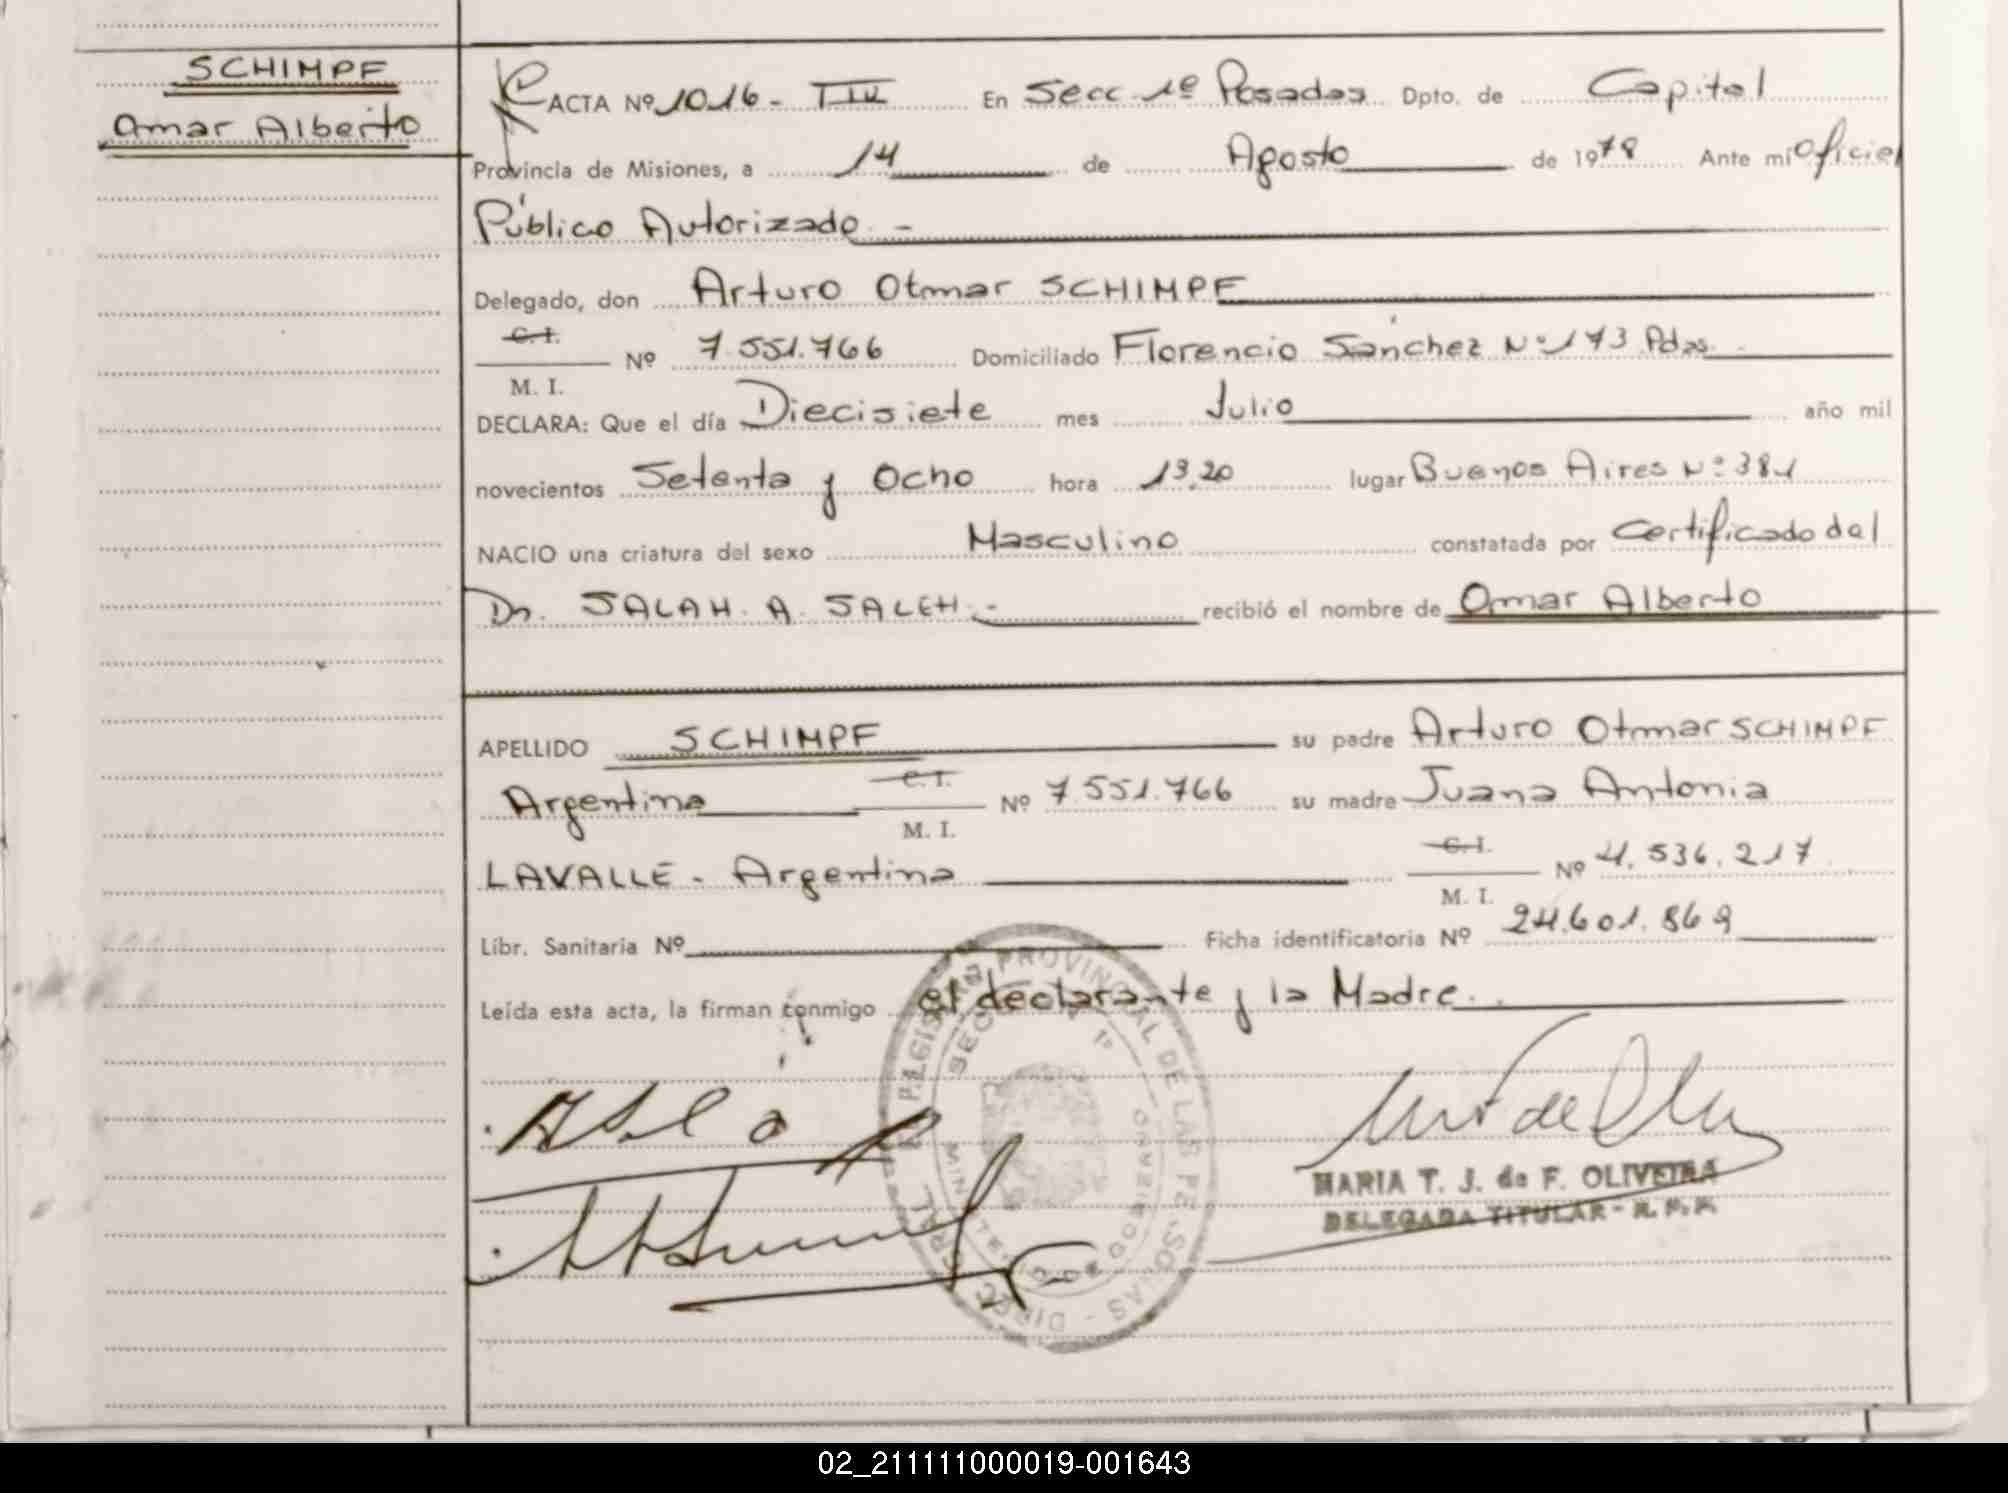 SCHIMPF
Omar Alberto
ACTA Nº 1016 - TIV En Secc 1º Posadas Dpto. de Capital
Provincia de Misiones, a 14 de Agosto de 1978 Ante mi Oficial
Público Autorizado -
Delegado, don Arturo Otmar SCHIMPF
C. I.
M. I. Nº 7.551.766 Domiciliado Florencio Sánchez Nº 173 Pdas.
DECLARA: Que el día Diecisiete mes Julio año mil
novecientos Setenta y Ocho hora 13,20 lugar Buenos Aires Nº 381
NACIO una criatura del sexo Masculino constatada por Certificado del
Dr. SALAH. A. SALEH.- recibió el nombre de Omar Alberto
APELLIDO SCHIMPF su padre Arturo Otmar SCHIMPF
Argentino C. I.
M. I. Nº 7.551.766 su madre Juana Antonia
LAVALLE - Argentina C. I.
M. I. Nº 4.536.217
Libr. Sanitaria Nº Ficha identificatoria Nº 24.601.869
Leída esta acta, la firman conmigo el declarante y la Madre.
MARIA T. J. de F. OLIVEIRA
DELEGADA TITULAR - R. P. P.
02_211111000019-001643